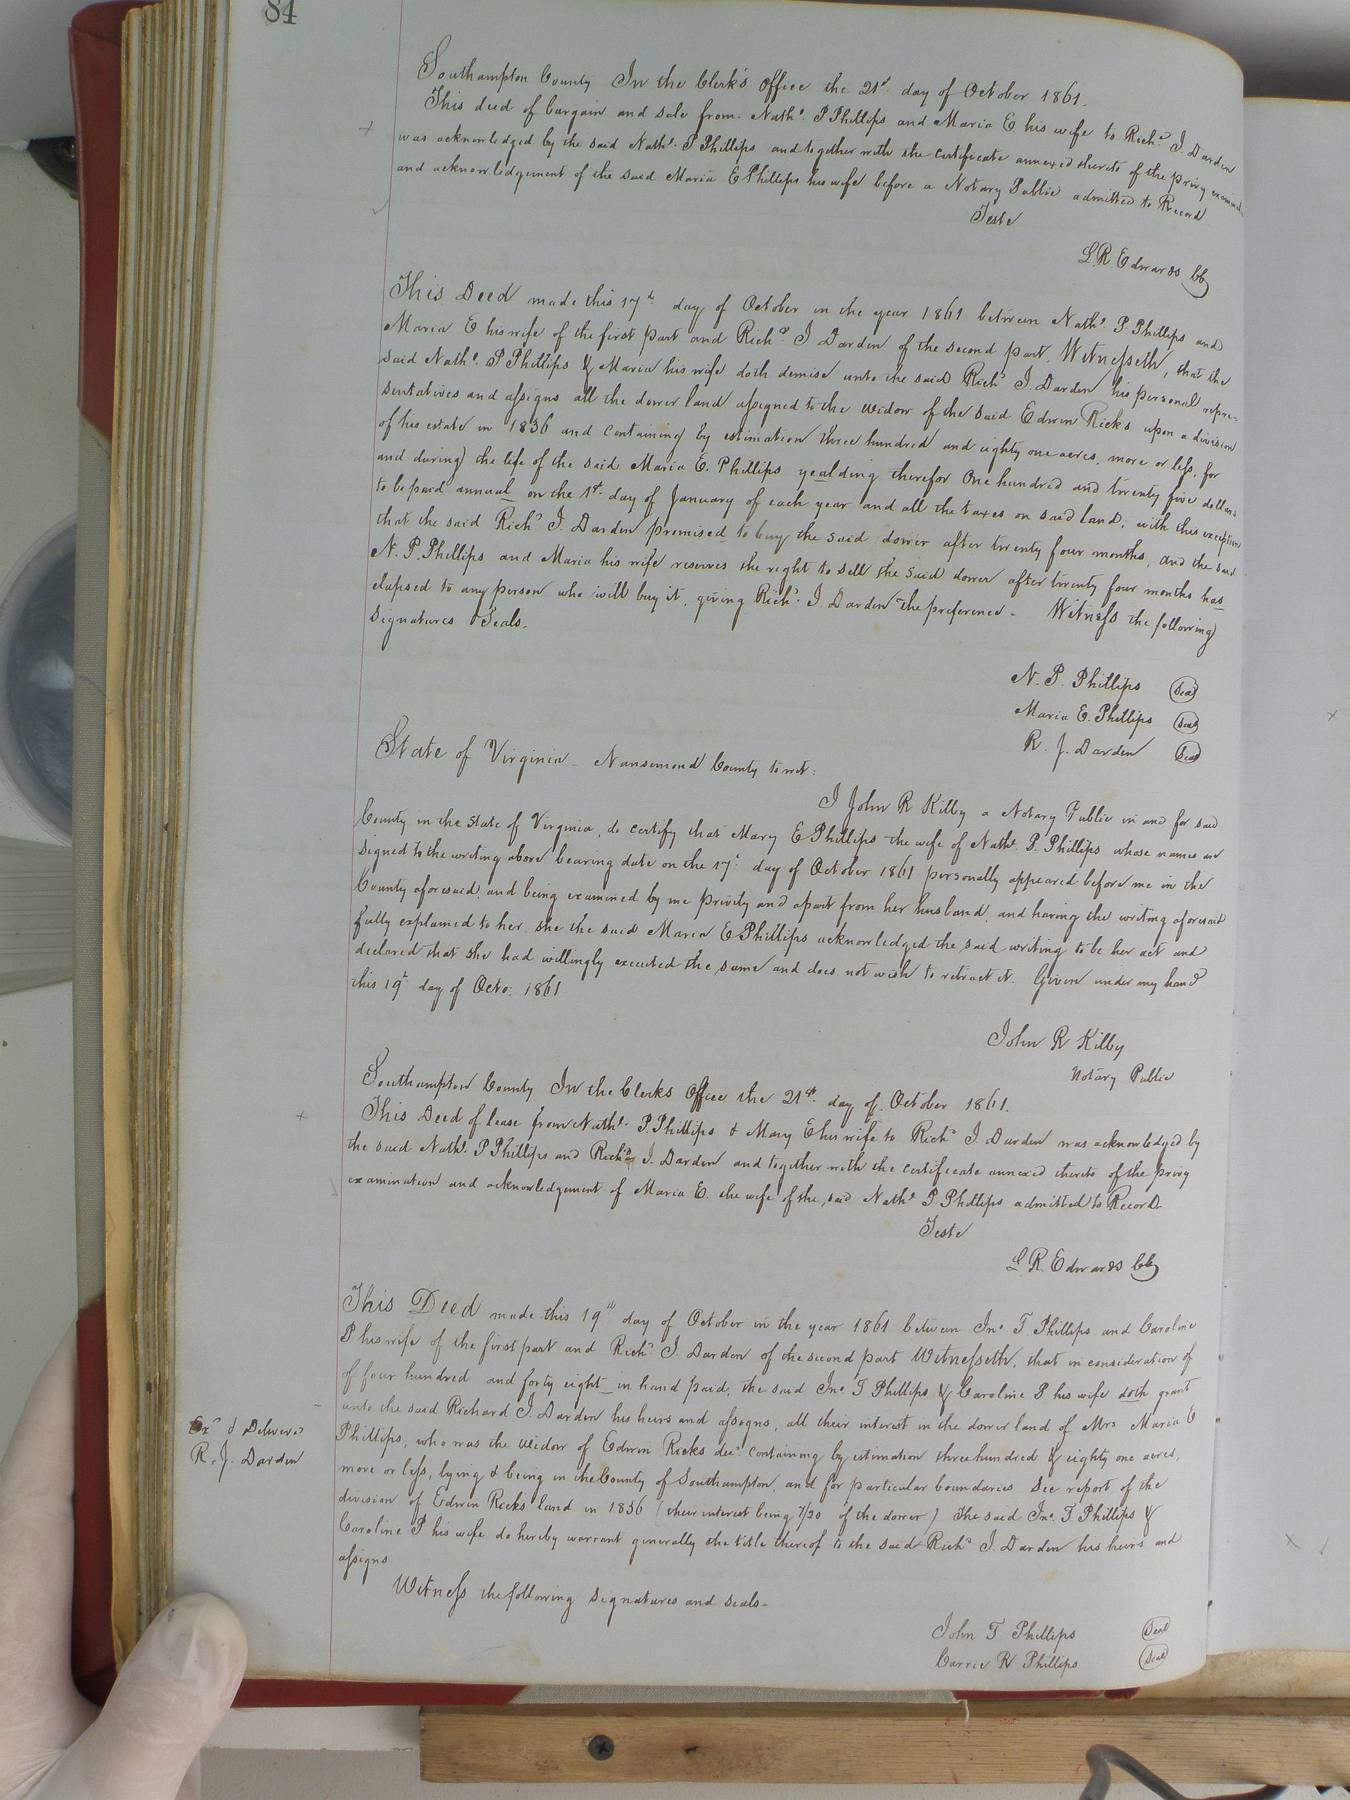 84
Southampton County In the Clerk's Office the 21st day of October 1861.
This deed of bargain and sale from Nath¹. P Phillips and Maria E his wife to Richd. J. Darden
was acknowledged by the said Nath¹. P Phillips and together with the certificate annexed thereto of the privy
and acknowledgement of the said Maria E Phillips his wife before a Notary Public admitted to Record
Teste
L. R. Edwards CC
This Deed made this 17th day of October in the year 1861 between Nath¹. P Phillips and
Maria E his wife of the first part and Richd. J Darden of the second part, Witnesseth, that the
said Nath¹. P Phillips & Maria his wife doth demise unto the said Richd J. Darden his personal repre-
sentatives and assigns all the dower land assigned to the widow of the said Edwin Ricks upon a division
of his estate in 1836 and containing by estimation three hundred and eighty one acres, more or less, for
and during the life of the said Maria E. Phillips yealding therefor One hundred and twenty five dollars
to be paid annual on the 1st day of January of each year and all the taxes on said land; with this exception
that the said Richd J. Darden promised to buy the said dower after twenty four months, and the said
N. P. Phillips and Maria his wife reserves the right to sell the said dower after twenty four months has
elapsed to any person who will buy it, giving Richd. J. Darden the preference - Witness the following
signatures Seals.
N. P. Phillips Seal
Maria E. Phillips Seal
R. J. Darden Seal
State of Virginia - Nansemond County to wit:
I John R Kilby a Notary Public in and for said
County in the State of Virginia, do certify that Mary E Phillips the wife of Nath¹. P. Phillips whose names are
signed to the writing above bearing date on the 17t day of October 1861 personally appeared before me in the
County aforesaid, and being examined by me privily and apart from her husband, and having the writing aforesaid
fully explained to her, she the said Maria E Phillips acknowledged the said writing to be her act and
declared that she had willingly executed the same and does not wish to retract it. Given under my hand
this 19t day of Octo: 1861
John R Kilby
Notary Public
Southampton County In the Clerks Office the 21st day of October 1861.
This Deed of lease from Nath¹. P. Phillips & Mary E his wife to Richd J. Darden was acknowledged by
the said Nath¹. P Phillips and Richd J. Darden and together with the certificate annexed thereto of the privy
examination and acknowledgement of Maria E. the wife of the said Nath¹ P Phillips admitted to Record
Teste
L R. Edwards CC
This Deed made this 19th day of October in the year 1861 between Jno. T Phillips and Caroline
P his wife of the first part and Richd J. Darden of the second part Witnesseth, that in consideration of
of four hundred and forty eight in hand paid, the said Jno. T Phillips & Caroline P his wife doth grant
unto the said Richard J. Darden his heirs and assigns, all their interest in the dower land of Mrs Maria E
Phillips, who was the widow of Edwin Ricks decd. containing by estimation three hundred & eighty one acres,
more or less, lying & being in the County of Southampton, and for particular boundaries See report of the
division of Edwin Ricks land in 1836 (their interest being 7/20 of the dower) The said Jno. T. Phillips &
Caroline P his wife do hereby warrant generally the title thereof to the said Richd J. Darden his heirs and
assigns
Witness the following signatures and seals-
John T Phillips Seal
Carrie R Phillips Seal
Exd & Deliverd
R. J. Darden